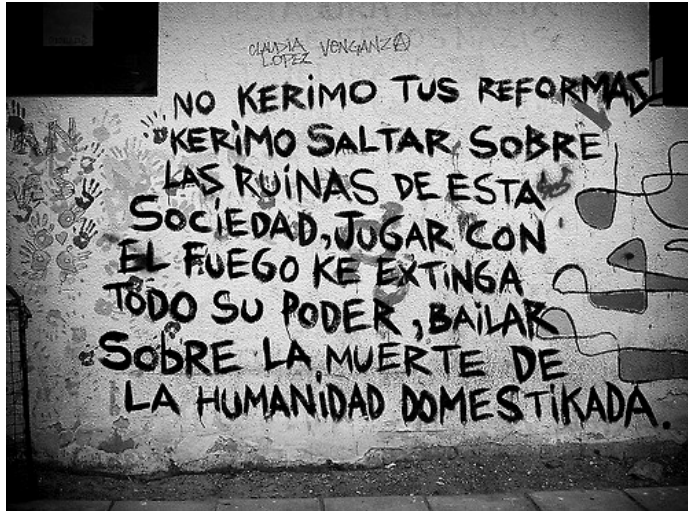 CLAUDIA LOPEZ VENGANZA
NO KERIMO TUS REFORMAS
KERIMO SALTAR SOBRE
LAS RUINAS DE ESTA
SOCIEDAD, JUGAR CON
EL FUEGO KE EXTINGA
TODO SU PODER, BAILAR
SOBRE LA MUERTE DE
LA HUMANIDAD DOMESTIKADA.